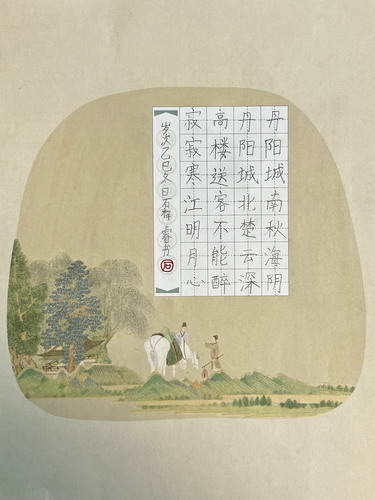 丹阳城南秋海阴
丹阳城北楚云深
高楼送客不能醉
寂寂寒江明月心
岁次乙巳冬日石梓睿书
石